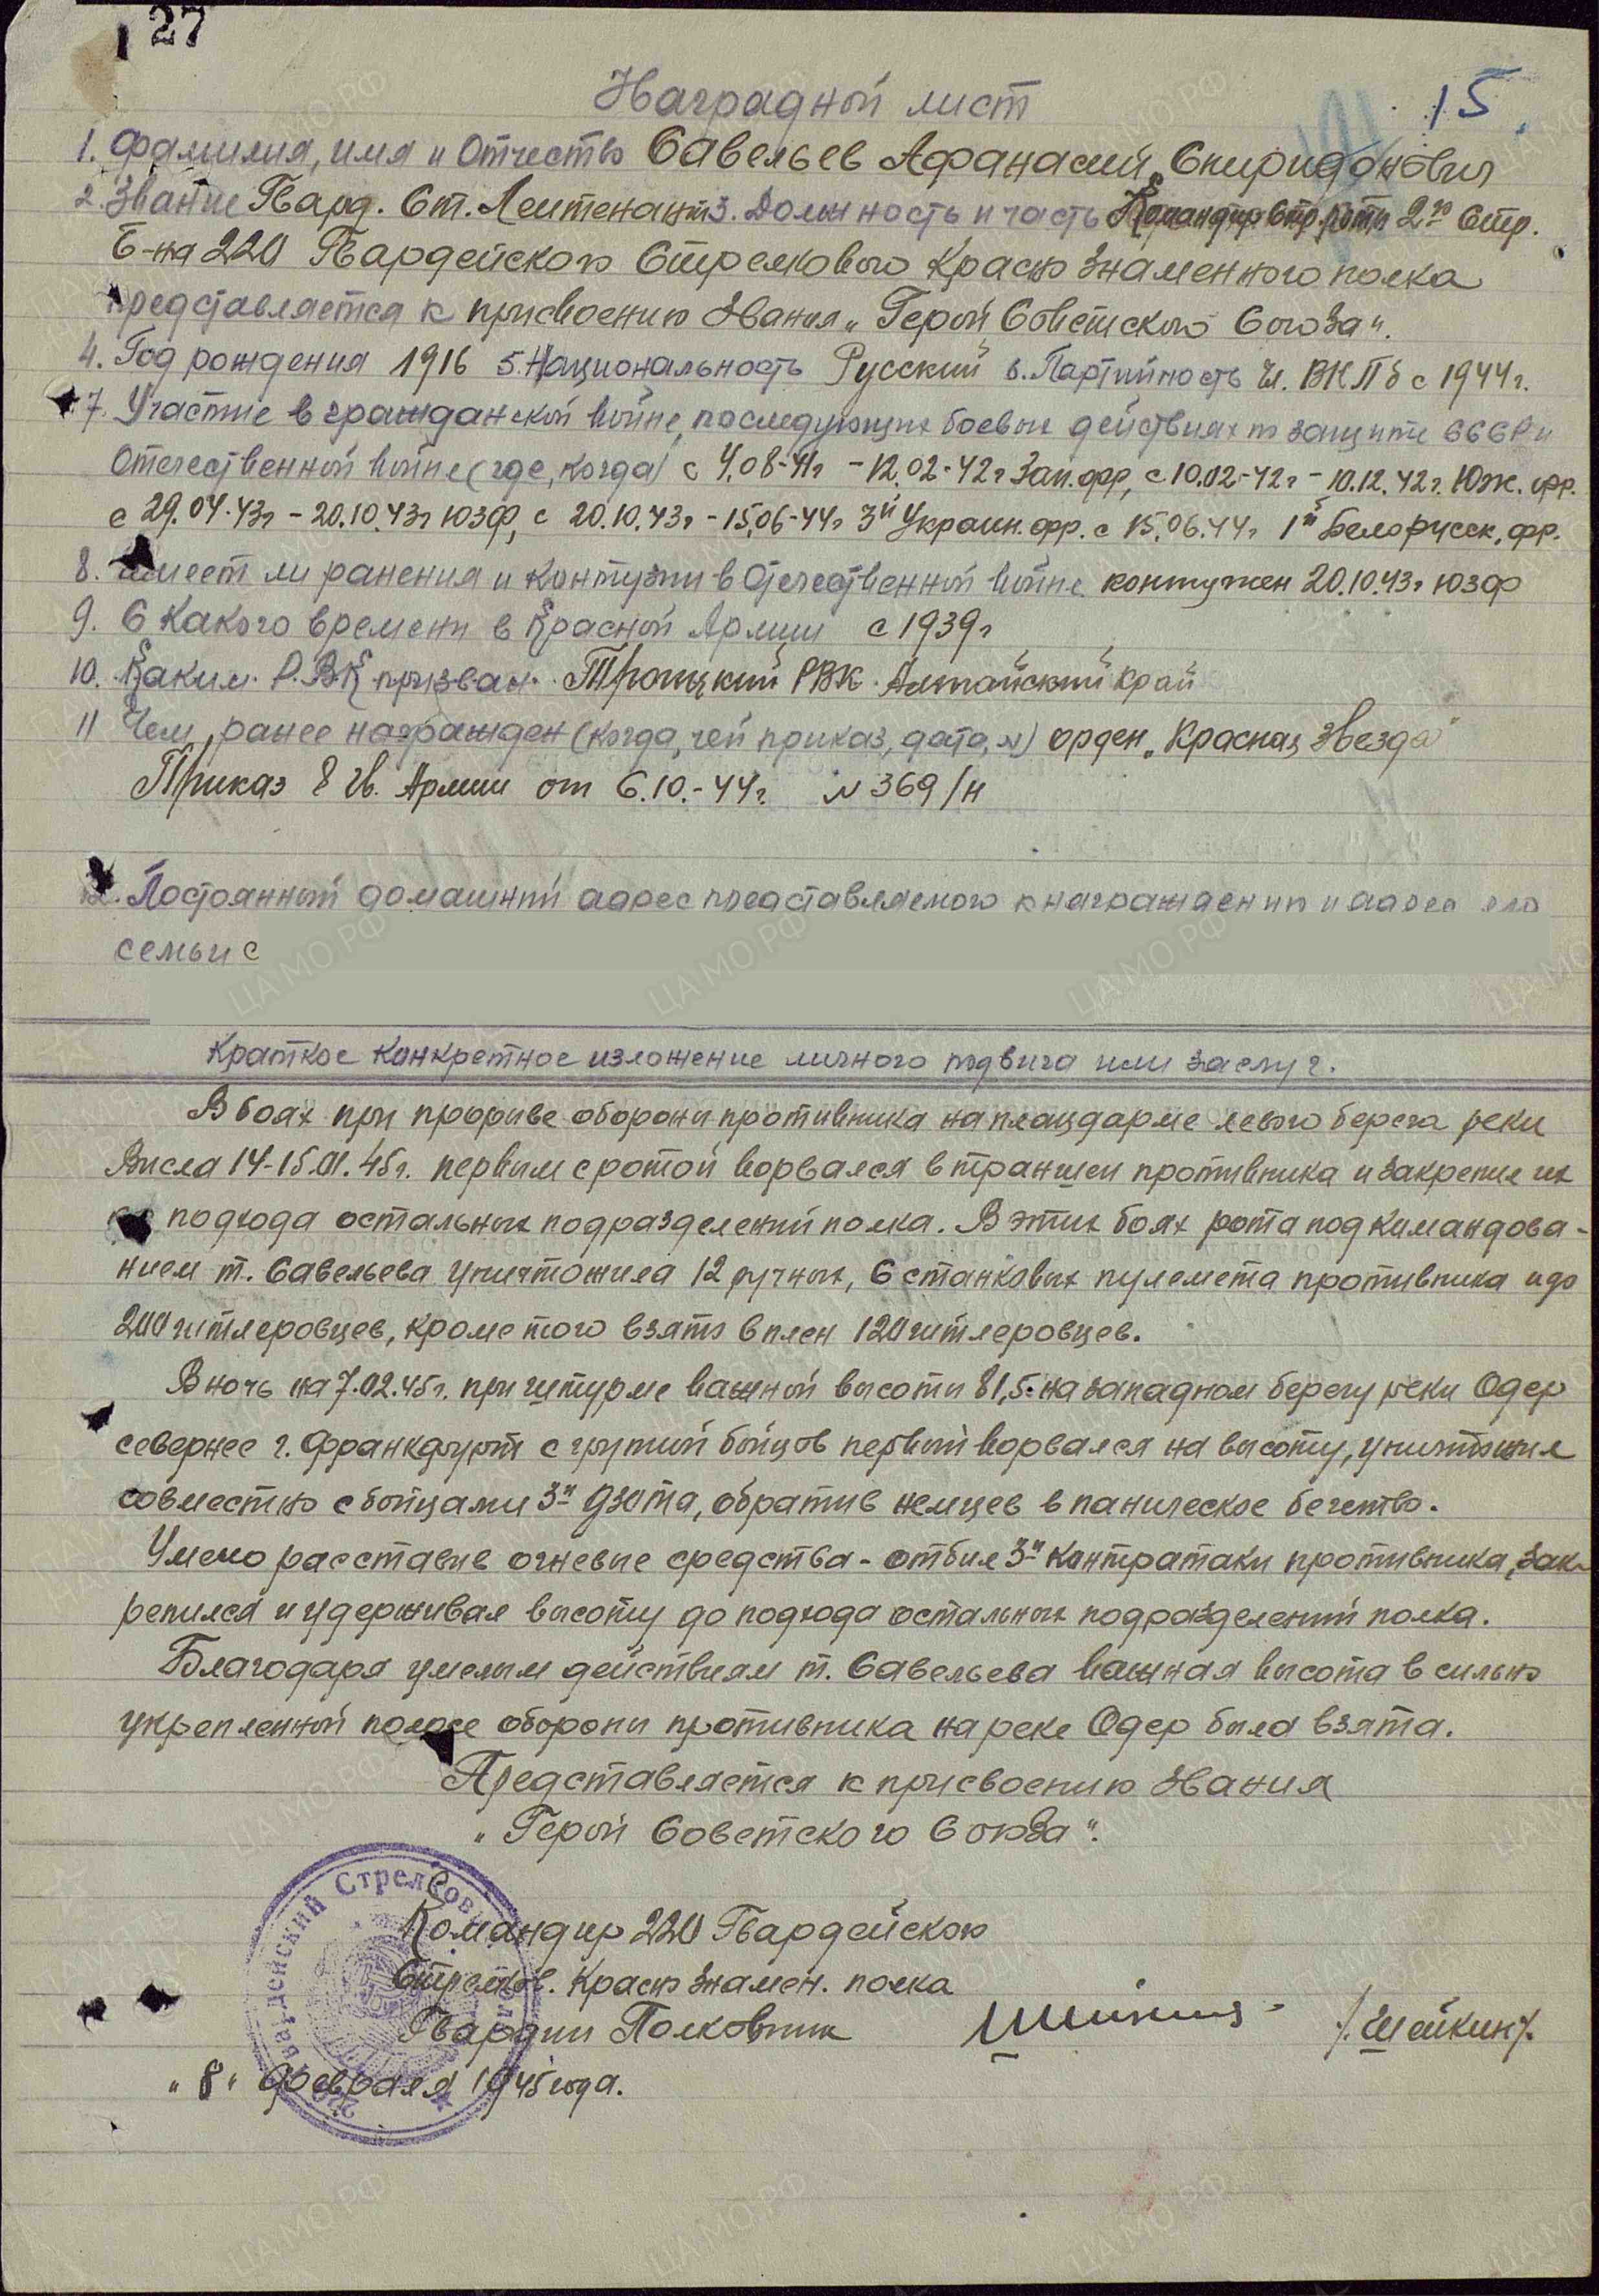 27
15
Наградной лист
1. Фамилия, имя и Отчество Савельев Афанасий Спиридонович
2. Звание Гвард. Ст. Лейтенант 3. Должность и часть Командир стр. роты 2го Стр.
Б-на 220 Гвардейского Стрелкового Краснознаменного полка
представляется к присвоению Звания „Герой Советского Союза".
4. Год рождения 1916 5. Национальность Русский 6. Партийность Чл. ВКПб с 1944г.
7. Участие в гражданской войне, последующих боевых действиях по защите СССР и
Отечественной войне (где, когда) с 4.08-41г - 12.02-42г Зап. фр, с 10.02-42г - 10.12.42г. Юж. фр.
с 29.04.43г - 20.10.43г ЮЗФ, с 20.10.43г - 15.06-44г 3й Украин. фр. с 15.06.44г 1й Белорусск. фр.
8. имеет ли ранения и контузии в Отечественной войне контужен 20.10.43г ЮЗФ
9. С какого времени в Красной Армии с 1939г
10. Каким Р.В.К призван. Троицкий РВК Алтайский край
11 Чем ранее награжден (когда, чей приказ, дата, №) орден „Красная Звезда"
Приказ 8 гв. Армии от 6.10.-44г. № 369/н
12. Постоянный домашний адрес представляемого к награждению и адрес его
семьи с
Краткое конкретное изложение личного подвига или заслуг.
В боях при прорыве обороны противника на плацдарме левого берега реки
Висла 14-15.01.45г. первым с ротой ворвался в траншеи противника и закрепил их
до подхода остальных подразделений полка. В этих боях рота под командова-
нием т. Савельева уничтожила 12 ручных, 6 станковых пулемета противника и до
200 гитлеровцев, кроме того взято в плен 120 гитлеровцев.
В ночь на 7.02.45г. при штурме важной высоты 81,5 на западном берегу реки Одер
севернее г. Франкфурт с группой бойцов первый ворвался на высоту, уничтожил
совместно с бойцами 3и дзота, обратив немцев в паническое бегство.
Умело расставив огневые средства - отбил 3и контратаки противника, зак-
репился и удерживал высоту до подхода остальных подразделений полка.
Благодаря умелым действиям т. Савельева важная высота в сильно
укрепленной полосе обороны противника на реке Одер была взята.
Представляется к присвоению звания
„Герой Советского Союза".
Командир 220 Гвардейского
Стрелков. Краснознамен. полка
Гвардии Полковник /Шейкин/.
„8" Февраля 1945 года.
Гвардейский Стрелковы
ЦА МО РФ